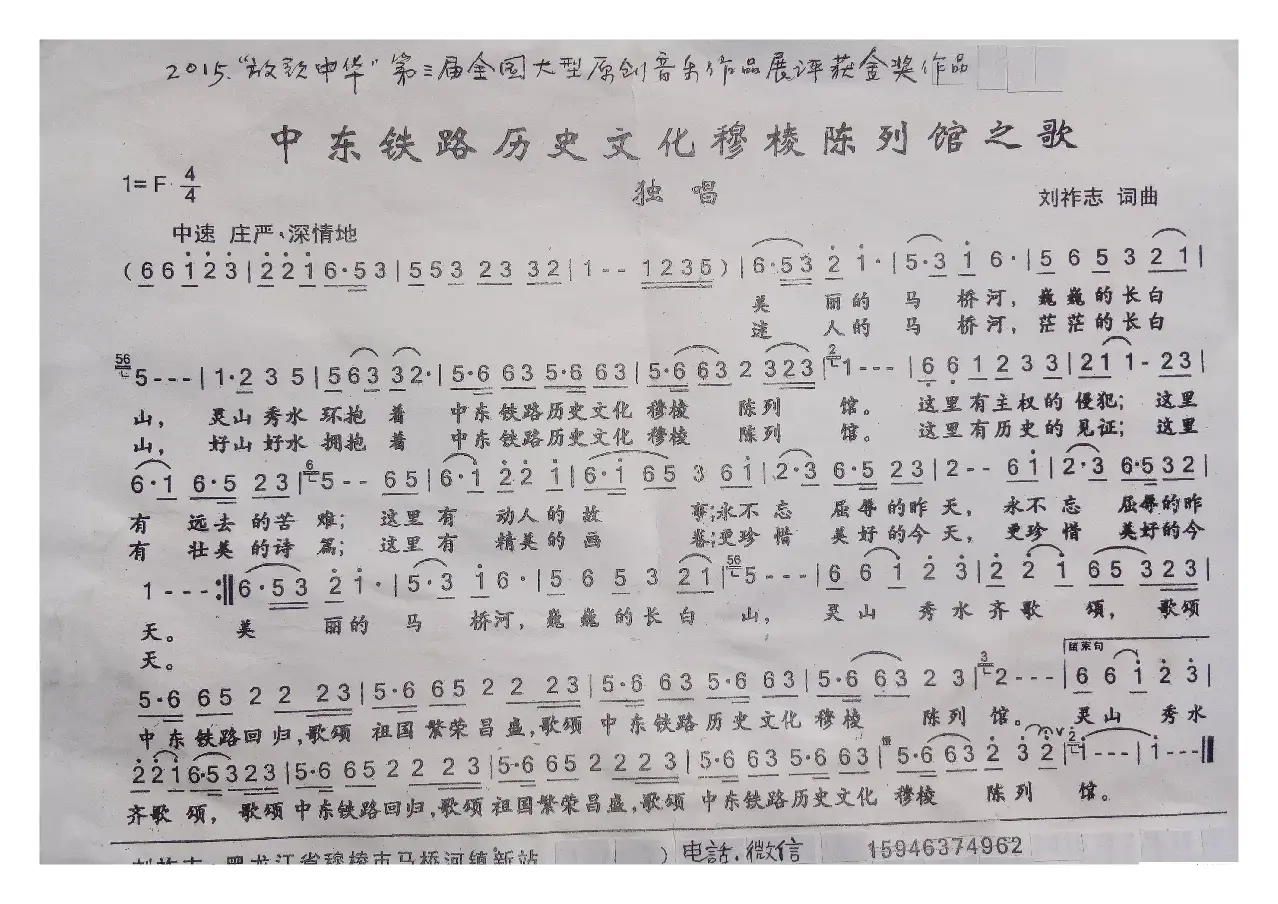 2015."放歌中华"第三届全国大型原创音乐作品展评获金奖作品
中东铁路历史文化穆棱陈列馆之歌
1=F 4/4
独唱
刘祚志 词曲
中速 庄严、深情地
(6 6 1 2 3 | 2 2 1 6·5 3 | 5 5 3 2 3 3 2 | 1 - - 1 2 3 5) | 6·5 3 2 1· | 5·3 1 6· | 5 6 5 3 2 1 |
美 丽的 马 桥河，巍巍的长白
迷 人的 马 桥河，茫茫的长白
56 5 - - - | 1·2 3 5 | 5 6 3 3 2· | 5·6 6 3 5·6 6 3 | 5·6 6 3 2 3 2 3 | 2 1 - - - | 6 6 1 2 3 3 | 2 1 1 - 2 3 |
山， 灵山秀水环抱 着 中东铁路历史文化 穆棱 陈列 馆。 这里有主权的侵犯； 这里
山， 好山好水拥抱 着 中东铁路历史文化 穆棱 陈列 馆。 这里有历史的见证； 这里
6·1 6·5 2 3 | 6 5 - - 6 5 | 6·1 2 2 1 | 6·1 6 5 3 6 1 | 2·3 6·5 2 3 | 2 - - 6 1 | 2·3 6·5 3 2 |
有 远去的苦 难； 这里有 动人的故 事；永不忘 屈辱的昨 天， 永不忘 屈辱的昨
有 壮美的诗 篇； 这里有 精美的画 卷；更珍惜 美好的今 天， 更珍惜 美好的今
1 - - - :‖ 6·5 3 2 1· | 5·3 1 6· | 5 6 5 3 2 1 | 56 5 - - - | 6 6 1 2 3 | 2 2 1 6 5 3 2 3 |
天。 美 丽的 马 桥河，巍巍的长白 山， 灵山 秀水齐歌 颂， 歌颂
天。
5·6 6 5 2 2 2 3 | 5·6 6 5 2 2 2 3 | 5·6 6 3 5·6 6 3 | 5·6 6 3 2 3 | 3 2 - - - | 结束句 6 6 1 2 3 |
中东铁路回归，歌颂 祖国繁荣昌盛，歌颂 中东铁路历史文化 穆棱 陈列 馆。 灵山 秀水
2 2 1 6·5 3 2 3 | 5·6 6 5 2 2 2 3 | 5·6 6 5 2 2 2 3 | 5·6 6 3 5·6 6 3 | 慢 5·6 6 3 2 3 2 | 2 1 - - - | 1 - - - ‖
齐歌 颂， 歌颂中东铁路回归，歌颂祖国繁荣昌盛，歌颂 中东铁路历史文化 穆棱 陈列 馆。
刘祚志：黑龙江省穆棱市马桥河镇新站 ) 电話.微信 15946374962